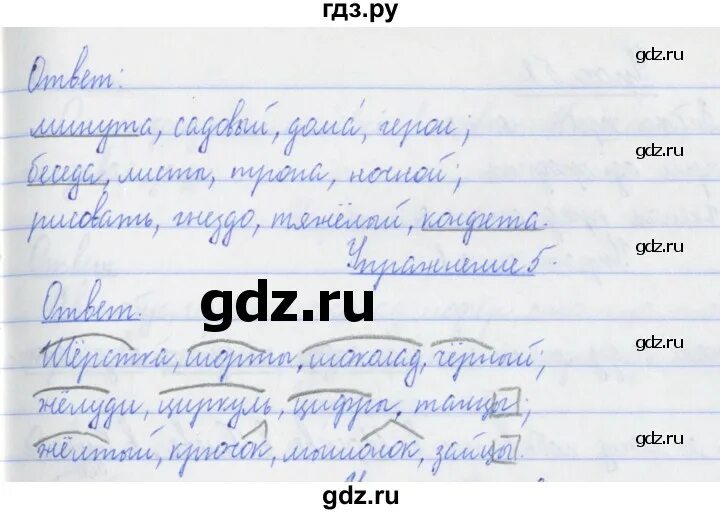 гдз.ру
gdz.ru
Ответ:
минута, садовый, дома́, герои;
gdz.ru
беседа, листы, тропа, ночной;
рисовать, гнездо, тяжёлый, конфета.
Упражнение 5.
gdz.ru
gdz.ru
Ответ.
Шёрстка, шорты, шоколад, чёрный;
gdz.ru
жёлуди, циркуль, цифры, танцы;
жёлтый, крючок, мышонок, зайцы.
gdz.ru
gdz.ru